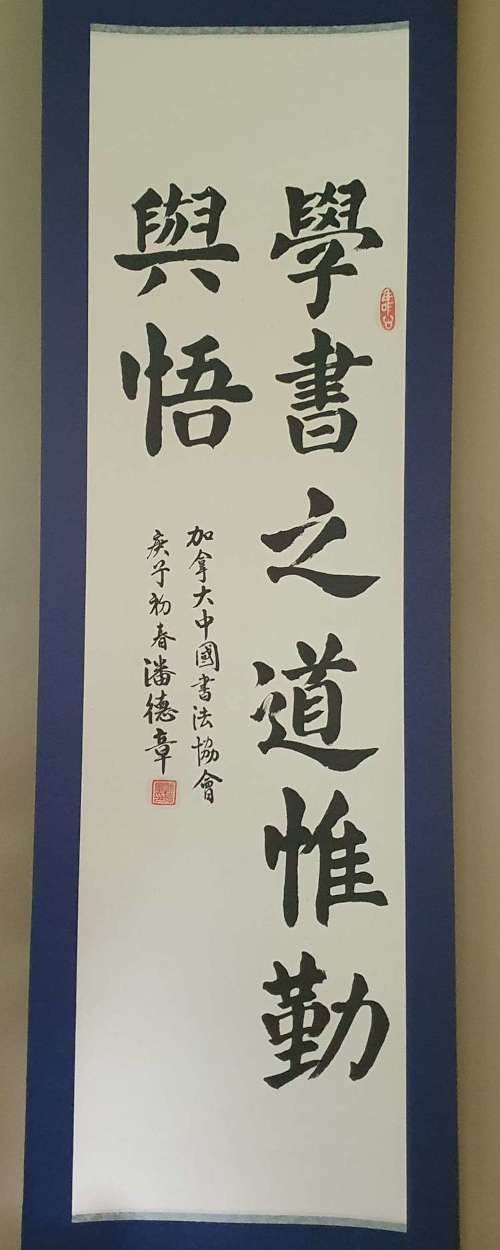 學書之道惟勤
與悟
加拿大中國書法協會
庚子初春潘德章